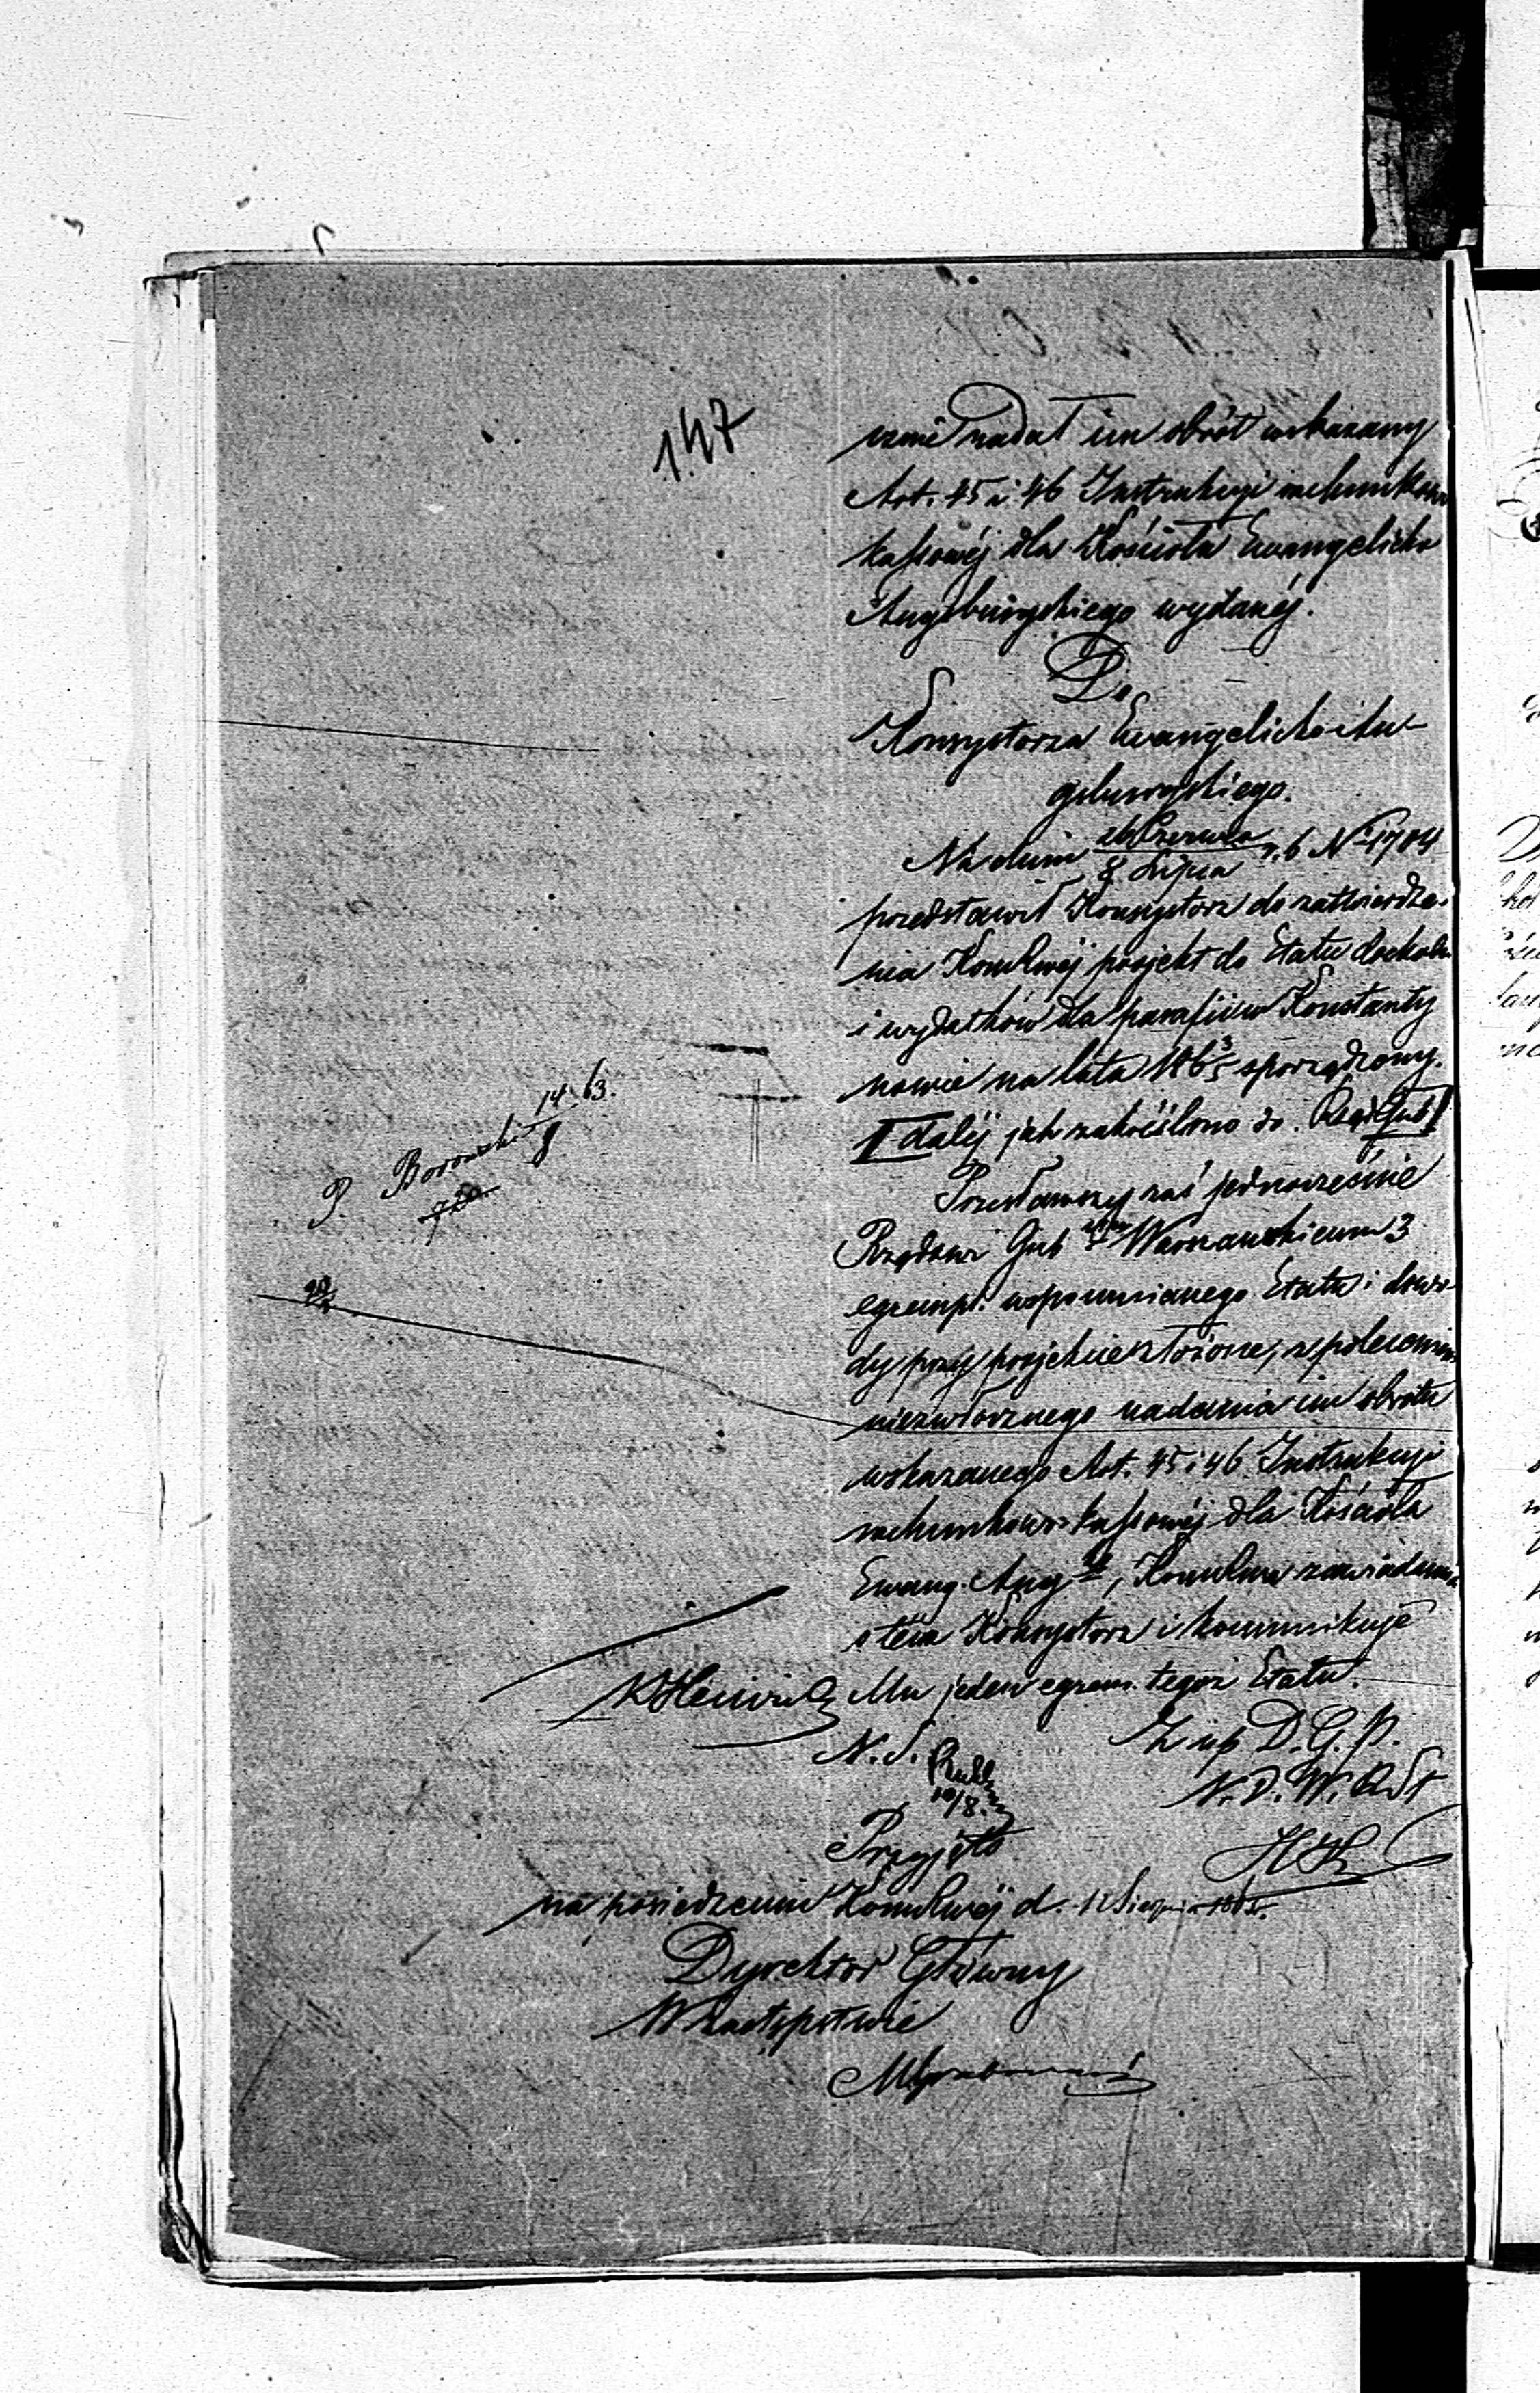 147
cznie nadał im obrót wskazany
Art. 45 i 46 Instrukcyi rachunkowo
kassowéj dla Kościoła Ewangelicko
Augsburgskiego wydanéj.
Do
Konsystorza Ewangelicko-Au-
gsburgskiego.
Na dniu 26 Czerwca / 8 Lipca r. b. № 1704
przedstawił Konsystorz do zatwierdze-
nia KomRwéj projekt do Etatu dochodów
i wydatków dla parafii w Konstanty
nowie na lata 186 3/5 sporządzony.
daléj jak zakréślono do Rząd. Gub
Przesławszy zaś jednocześnie
Rządowi Gub Warszawskiemu 3
egzempl. wspomnianego Etatu i dowo-
dy przy projekcie złożone, z poleceniem
niezwłocznego nadania im obrotu
wskazanego Art. 45 i 46 Instrukcyi
rachunkowo-kassowéj dla Kościoła
Ewang. Aug, KomRwa zawiadamia
o tém Konsystorz i komunikuje
Mu jeden egzem. tegoż Etatu.
P. Borowski 14/8 63.
N. S.
10/8.
Z up D. G. P.
N. D. W.
Przyjęto
na posiedzeniu KomRwéj d. 12 Sierpnia
Dyrektor Główny
W Zastępstwie